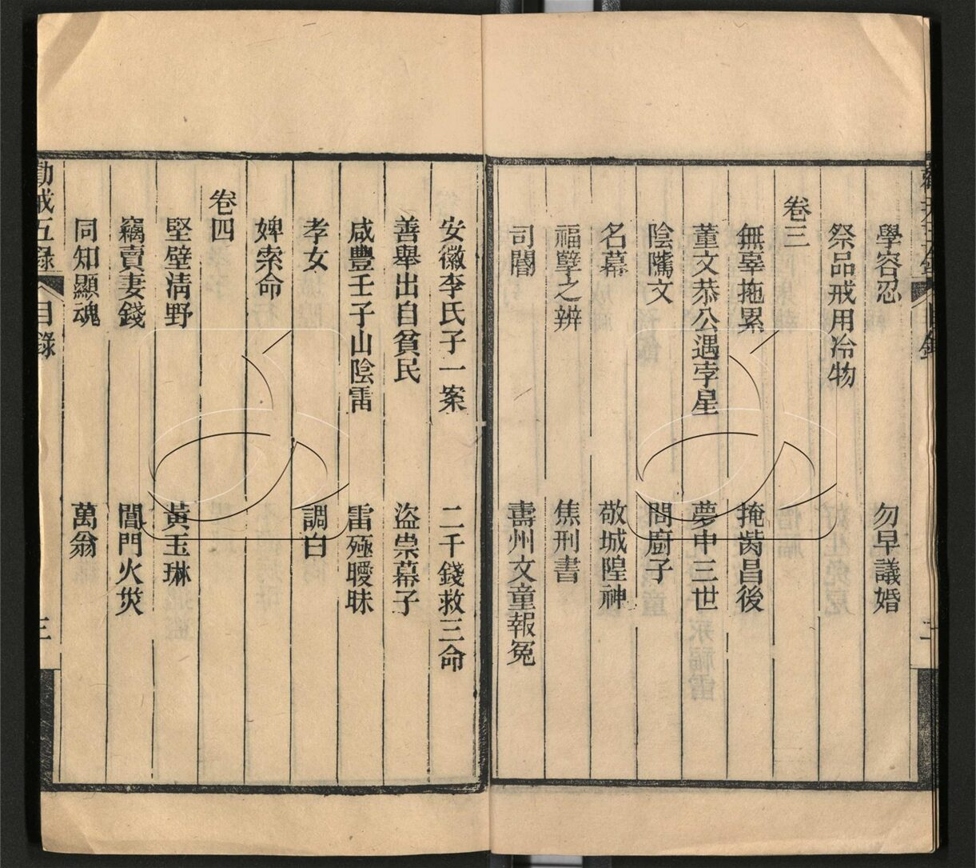 學容忍 勿早議婚
祭品戒用冷物
卷三
無辜拖累 掩骼昌後
董文恭公遇孛星 夢中三世
陰隲文 問廚子
名幕 敬城隍神
福孽之辨 焦刑書
司閽 壽州文童報冤
安徽李氏子一案 二千錢救三命
善舉出自貧民 盜祟幕子
咸豐壬子山陰雷 雷殛曖昧
孝女 調白
婢索命
卷四
堅壁清野 黃玉琳
竊賣妻錢 閶門火災
同知顯魂 萬翁
勸戒五錄 目錄 三